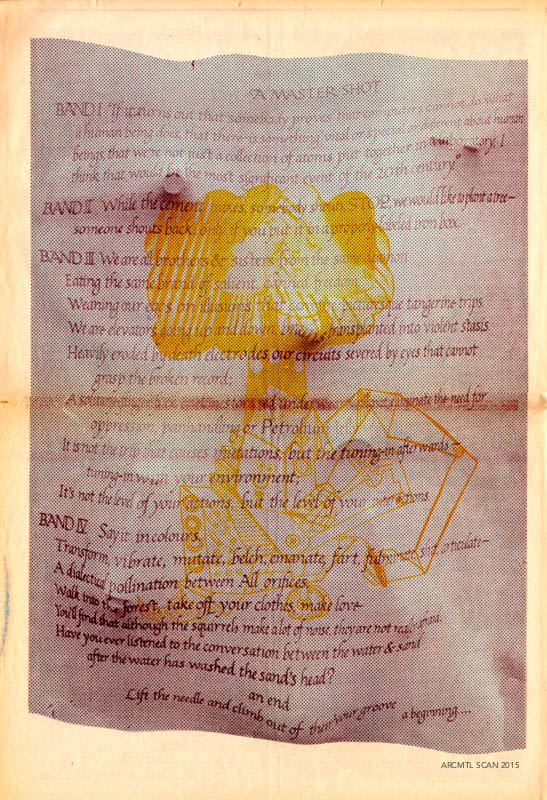 A MASTER SHOT
BAND I "If it turns out that somebody proves that computers cannot do what
a human being does, that there is something vital or special or different about human
beings, that we're not just a collection of atoms put together in a
think that would be the most significant event of the 20th century."
BAND II While the cement mixes, somebody shouts, STOP, we would like to plant a tree—
someone shouts back: only if you put it in a properly labeled iron box.
BAND III We are all brothers & sisters from the same demon
Eating the same brand of salient, canned freedom,
Weaning our eyes on illusions that picturesque tangerine trips.
We are elevators going up and down, transplanted into violent stasis.
Heavily eroded by death electrodes, our circuits severed by eyes that cannot
grasp the broken record;
A solitary eliminate the need for
oppression, panhandling or Petroleum
It is not the trip that causes mutations, but the tuning-in afterwards—
tuning-in with your environment;
It's not the level of your actions, but the level of your interactions.
BAND IV Say it in colours,
Transform, vibrate, mutate, belch, emanate, fart, fulminate, shit, articulate—
A dialectical pollination between All orifices.
Walk into the forest, take off your clothes, make love
You'll find that although the squirrels make a lot of noise, they are not really afraid.
Have you ever listened to the conversation between the water & sand
after the water has washed the sand's head?
an end
Lift the needle and climb out of your groove a beginning....
ARCMTL SCAN 2015